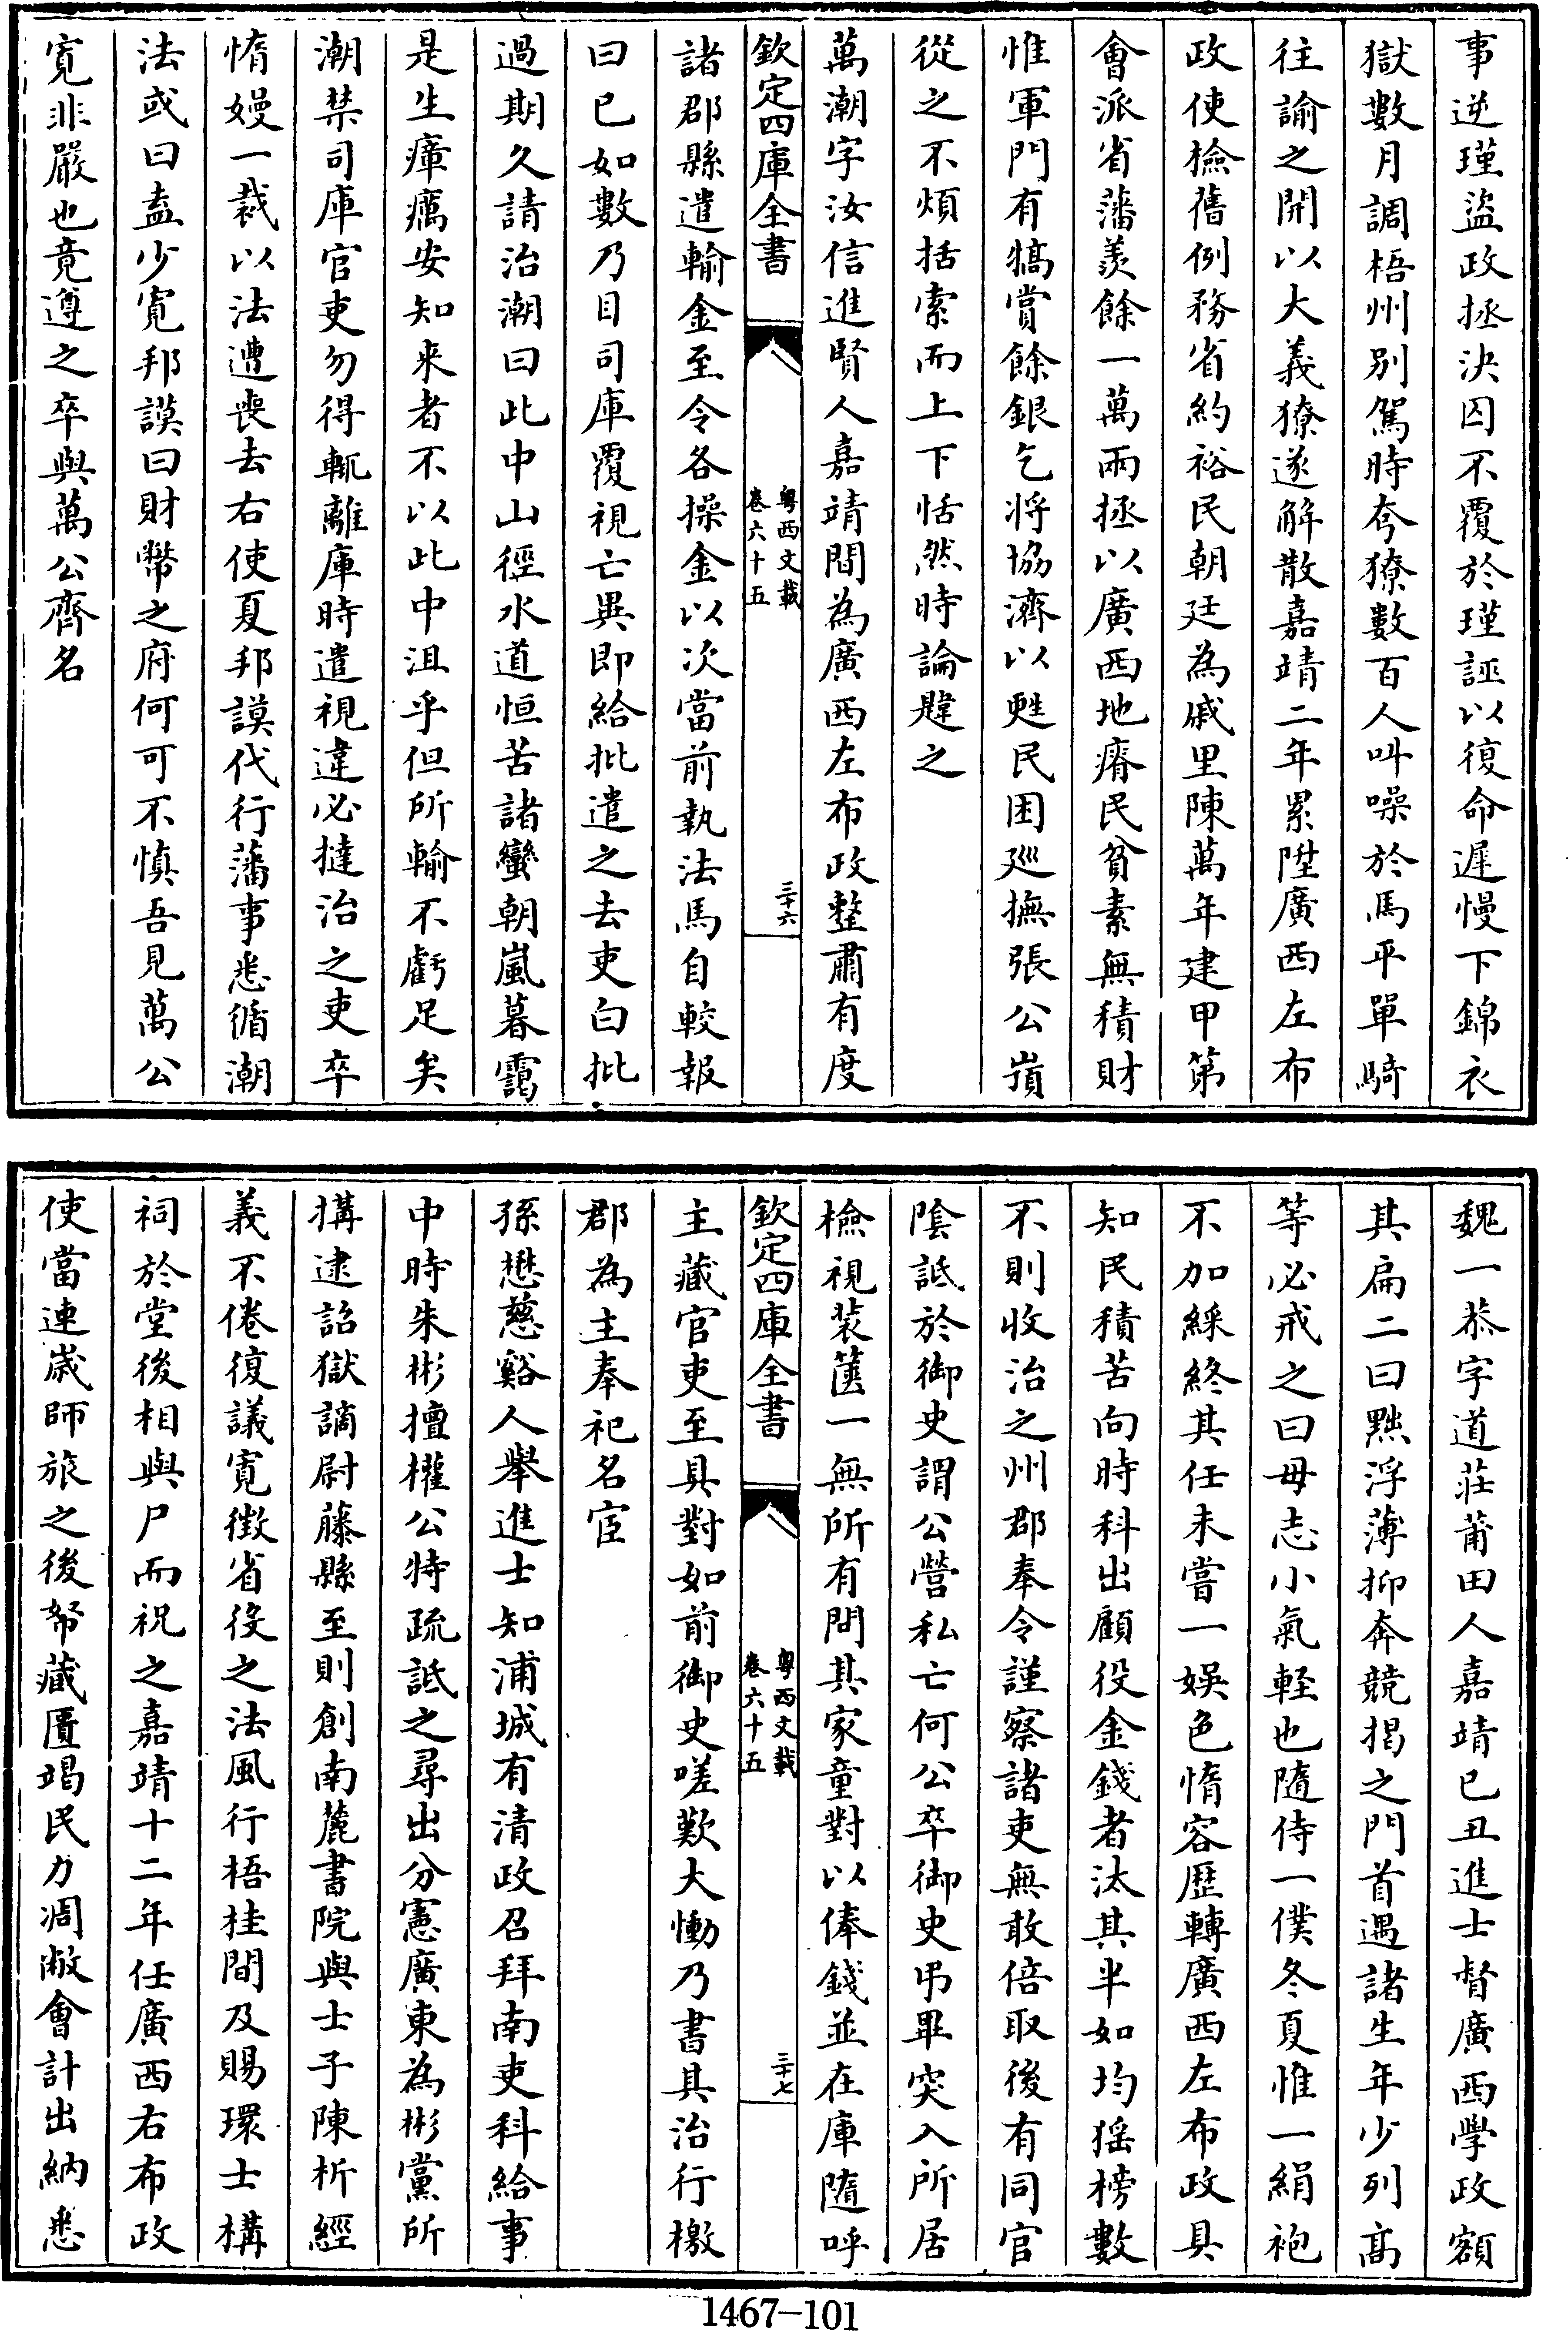 事逆瑾盜政拯決囚不覆於瑾誣以復命遲慢下錦衣
獄數月調梧州別駕時夸獠數百人叫噪於馬平單騎
往諭之開以大義獠遂解散嘉靖二年累陞廣西左布
政使檢舊例務省約裕民朝廷為戚里陳萬年建甲第
會派省藩羨餘一萬兩拯以廣西地瘠民貧素無積財
惟軍門有犒賞餘銀乞將協濟以甦民困廵撫張公嵿
從之不煩括索而上下恬然時論韙之
萬潮字汝信進賢人嘉靖間為廣西左布政整肅有度
欽定四庫全書
粵西文載
卷六十五
三十六
諸郡縣遣輸金至令各操金以次當前執法馬自較報
曰已如數乃目司庫覆視亡異即給批遣之去吏白批
過期久請治潮曰此中山徑水道恒苦諸蠻朝嵐暮靄
是生瘴癘安知來者不以此中沮乎但所輸不虧足矣
潮禁司庫官吏勿得輒離庫時遣視違必撻治之吏卒
惰嫚一裁以法遭喪去右使夏邦謨代行藩事悉循潮
法或曰盍少寛邦謨曰財幣之府何可不慎吾見萬公
寛非嚴也竟遵之卒與萬公齊名
魏一恭字道莊莆田人嘉靖已丑進士督廣西學政額
其扁二曰黜浮薄抑奔競揭之門首遇諸生年少列高
等必戒之曰毋志小氣軽也隨侍一僕冬夏惟一絹袍
不加綵終其任未嘗一娛色惰容歷轉廣西左布政具
知民積苦向時科出顧役金錢者汰其半如均猺榜數
不則收治之州郡奉令謹察諸吏無敢倍取後有同官
陰詆於御史謂公營私亡何公卒御史弔畢突入所居
檢視裝篋一無所有問其家童對以俸錢並在庫隨呼
欽定四庫全書
粵西文載
卷六十五
三十七
主藏官吏至具對如前御史嗟歎大慟乃書其治行檄
郡為主奉祀名宦
孫懋慈谿人舉進士知浦城有清政召拜南吏科給事
中時朱彬擅權公特疏詆之尋出分憲廣東為彬黨所
搆逮詔獄謫尉藤縣至則創南麓書院與士子陳析經
義不倦復議寛徵省役之法風行梧桂間及賜環士構
祠於堂後相與尸而祝之嘉靖十二年任廣西右布政
使當連歲師旅之後帑藏匱竭民力凋敝會計出納悉
1467-101